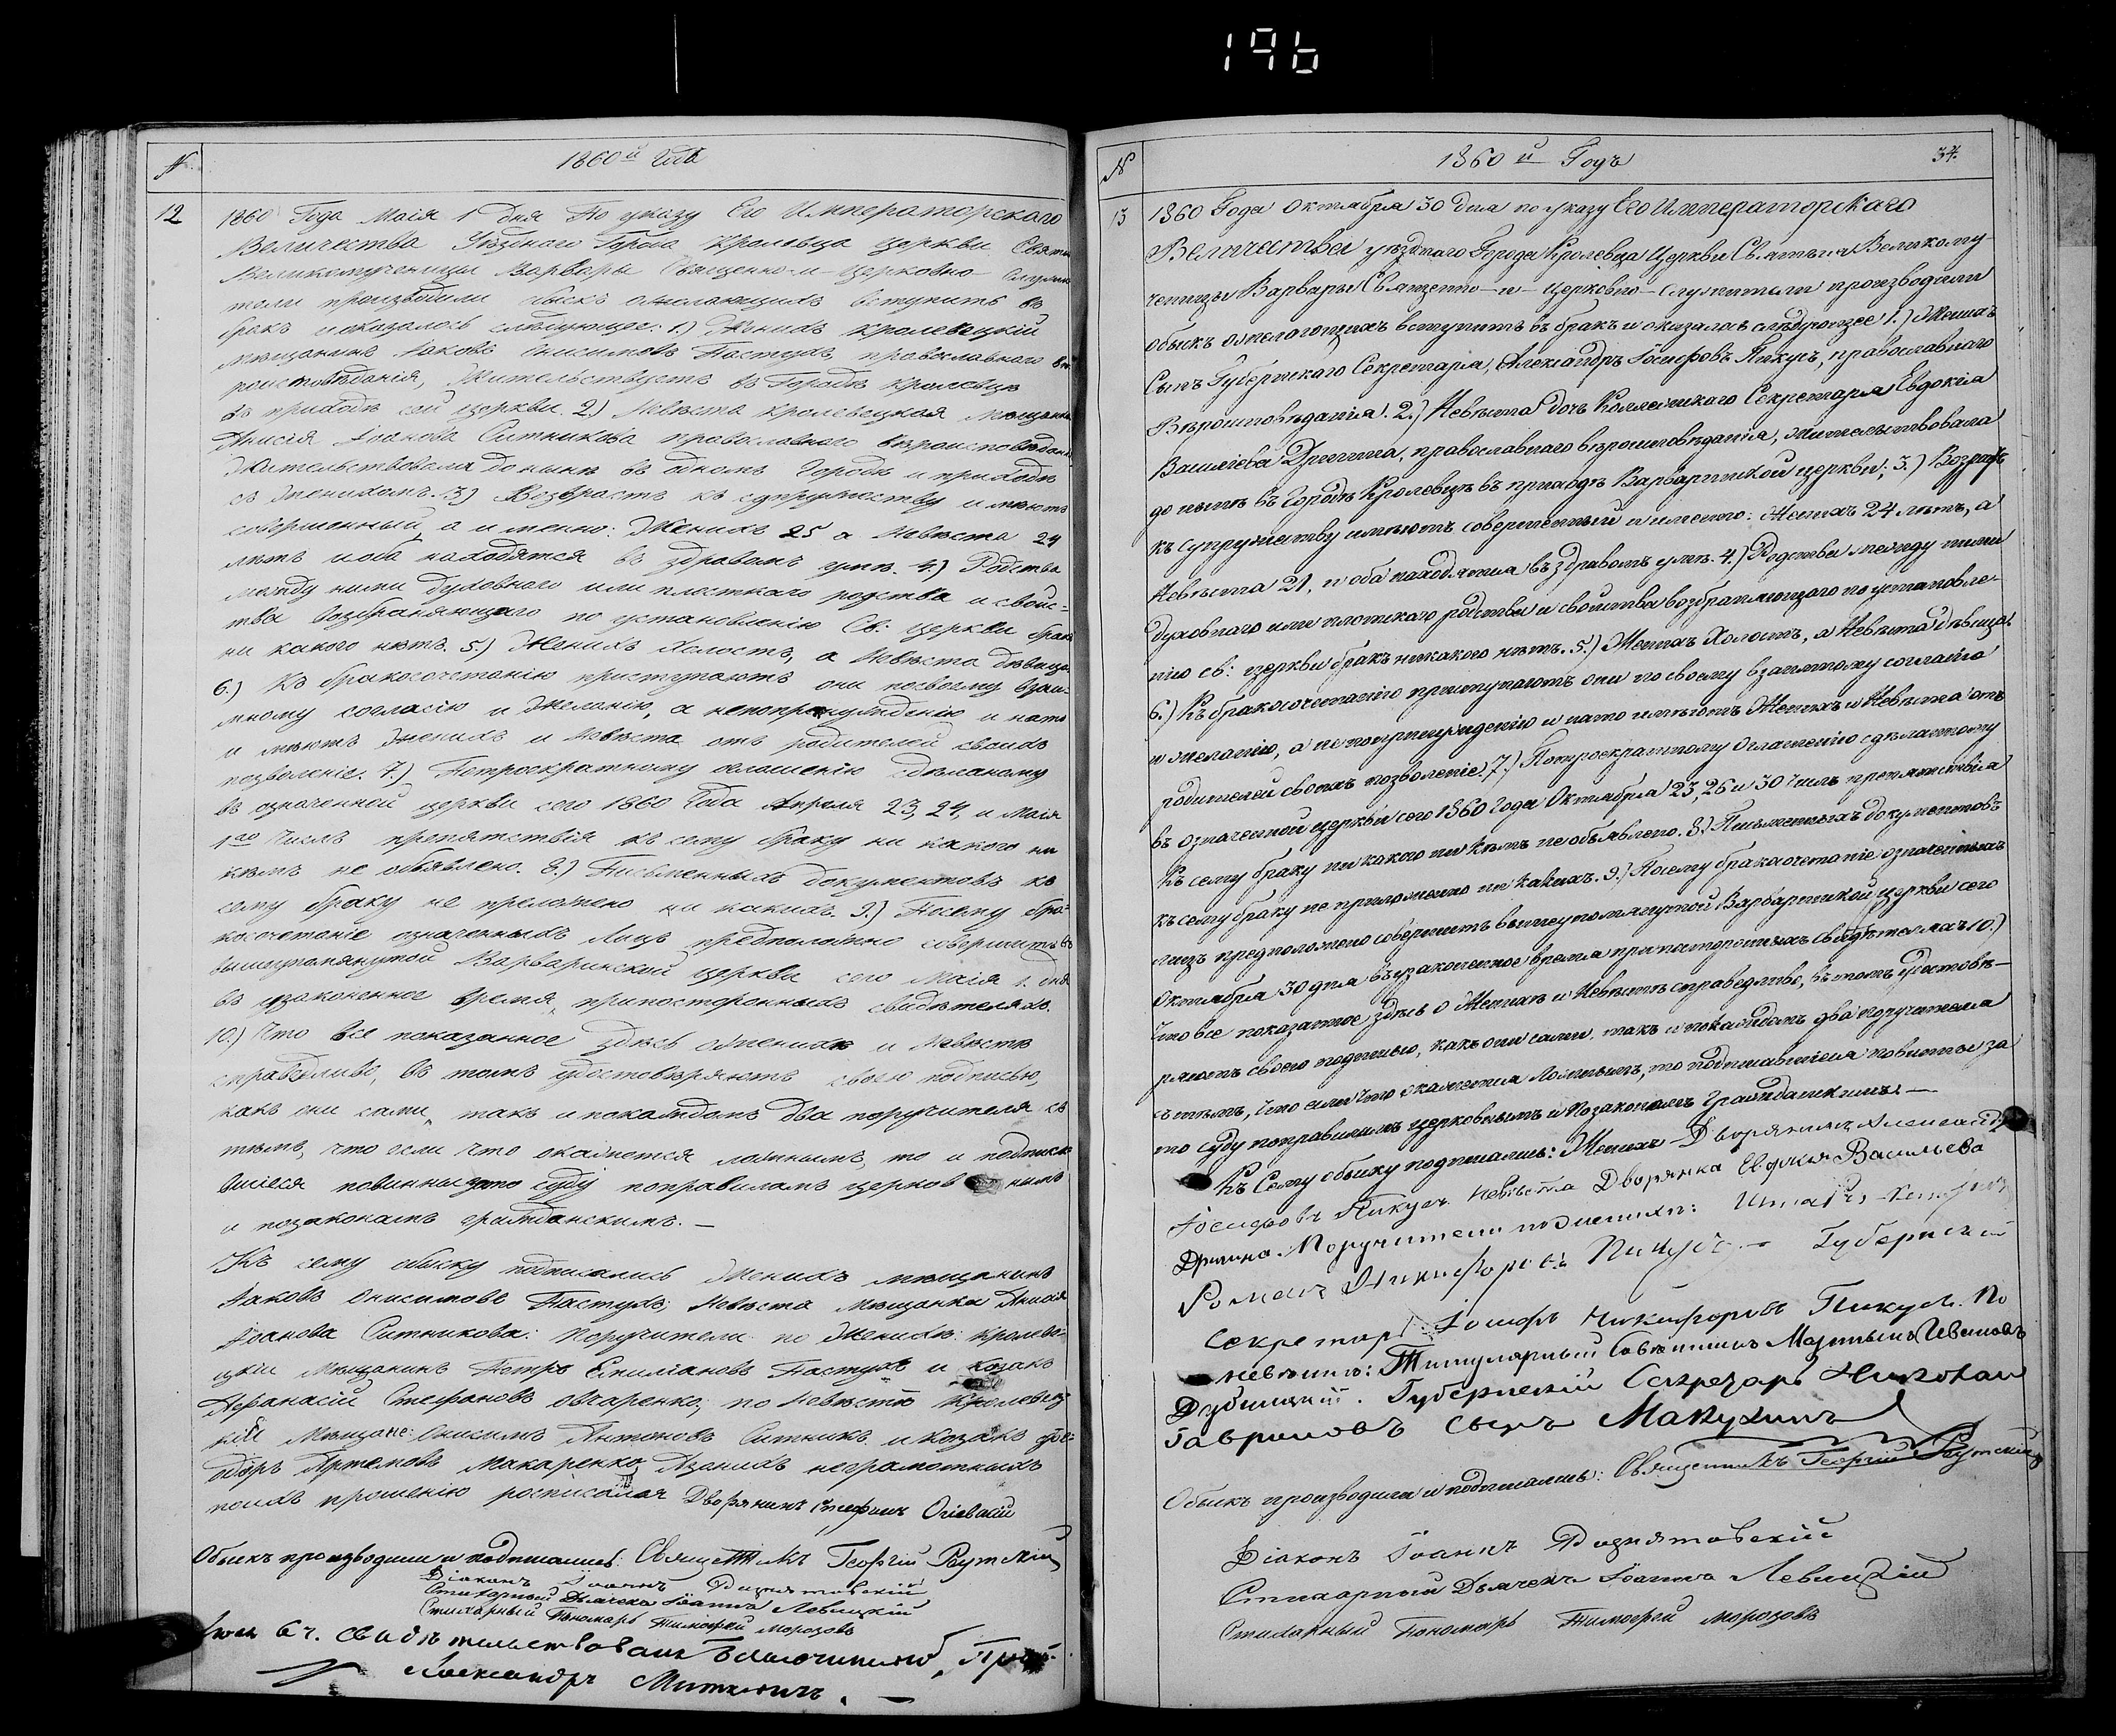 196
№
1860й Года
12
1860 Года Маія 1 дня По указу Его Императорскаго
Величества Уѣзднаго Города Кролевца Церкви Святыя
Великомученицы Варвары Священно-и-церковно-служи
тели производили обыскъ ожелающихъ вступить въ
бракъ и оказалось слѣдующее: 1.) Женихъ Кролевецкій
мѣщанинъ Іаковъ Онисимовъ Пастухъ, православнаго вѣ
роисповѣданія, Жительствуетъ въ Городѣ Кролевцѣ
въ приходѣ сей церкви. 2.) Невѣста Кролевецкая Мѣщанка
Анисія Іоанова Ситникова православнаго вѣроисповѣданія
Жительствовала до нынѣ въ одномъ Городѣ и приходѣ
съ Женихомъ. 3) Возврастъ къ супружеству имѣютъ
совершенный, а именно: Женихъ 25 а Невѣста 24
лѣтъ и оба находятся въ здравомъ умѣ. 4.) Родства
между ними духовнаго или плотскаго родства и свойс-
тва возбраняющаго по установленію Св: церкви бракъ
ни какого нѣтъ. 5.) Женихъ Холостъ, а Невѣста дѣвица
6.) Къ бракосочетанію приступаютъ они посвоему взаи-
мному согласію и Желанію, а непопринужденію и нато
имѣютъ Женихъ и Невѣста отъ родителей своихъ
позволеніе. 7.) Потроекратному оглашенію сдѣланому
въ означенной церкви сего 1860 Года Апреля 23, 24, и Маія
1го Числъ препятствія къ сему браку ни какого ни
кѣмъ не объявлено. 8.) Письменныхъ документовъ къ
сему браку не преложено ни какихъ. 9.) Посему бра-
косочетаніе означенныхъ Лицъ предположено совершить въ
вышеупомянутой Варваринской церкви сего Маія 1. дня
въ узаконенное время, припостороннихъ свидѣтеляхъ.
10.) Что все показанное здѣсь оженихѣ и Невѣстѣ
справедливо, въ томъ удостовѣряютъ своею подписью,
какъ они сами, такъ и покаждомъ два поручителя съ
тѣмъ, что если что окажется ложнымъ, то и подписа
вшіеся повинны зато суду поправиламъ церковнымъ
и позаконамъ гражданскимъ. —
Къ сему обыску подписались Женихъ мѣщанинъ
Іаковъ Онисимовъ Пастухъ; Невѣста Мѣщанка Анисія
Іоанова Ситникова: Поручители: по Женихѣ: Кролеве-
цкій Мѣщанинъ Петръ Емиліановъ Пастухъ и козакъ
Афанасій Стефановъ Овчаренко; по Невѣстѣ Кролевец
кій Мѣщане: Онисимъ Антоновъ Ситникъ и козакъ Фе-
одоръ Артемовъ Макаренко, Азанихъ неграмотныхъ
поихъ прошенію росписался Дворянинъ Стефанъ Огіевскій
Обыскъ производили и подписались: Священникъ Георгій Раутскій
Діаконъ Іоаннъ
Стихарный Дьячекъ Іоаннъ Левицкій
Стихарный Пономарь Тимофей Морозовъ
6 ч. свидѣтельствовалъ Благочинный,
Александръ
№
1860й Годъ
34.
13
1860 Года Октября 30 дня по указу Его Императорскаго
Величества уѣзднаго Города Кролевца Церкви Святыя Великому-
ченицы Варвары Священно-и-церковно-служители производили
обыскъ ожелающихъ вступить въ бракъ и оказалось слѣдующее 1.) Женихъ
Сынъ Губернскаго Секретаря, Александръ Іосифовъ Пикусъ, православнаго
Вѣроисповѣданія. 2.) Невѣста дочь Коллежскаго Секретаря Евдокія
Василіева Дрытна, православнаго вѣроисповѣданія, жительствовала
до нынѣ въ Городѣ Кролевцѣ въ приходѣ Варваринской церкви; 3.) Возрастъ
къ супружеству имѣютъ совершенный и именно: Женихъ 24 лѣтъ, а
Невѣста 21, и оба находятся въ здравомъ умѣ. 4.) Родства между ними
духовнаго или плотскаго родства и свойства возбраняющаго по установле-
нію св: церкви бракъ никакого нѣтъ. 5.) Женихъ Холостъ, а Невѣста дѣвица.
6.) Къ бракосочетанію приступаютъ они по своему взаимному согласію
и желанію, а непопринужденію и нато имѣютъ Женихъ и Невѣста отъ
родителей своихъ позволеніе. 7.) Потроекратному Оглашенію сдѣланному
въ означенной церкви сего 1860 Года Октября 23, 26 и 30 Числъ препятствія
Къ сему браку ни какого ни кѣмъ не объявлено. 8.) Письменныхъ документовъ
къ сему браку не приложено ни какихъ. 9.) Посему бракосочетаніе означенныхъ
лицъ предположено совершить въ вышеупомянутой Варваринской церкви сего
Октября 30 дня въ узаконенное время при постороннихъ свидѣтеляхъ 10.)
Что все показанное здѣсь о Женихѣ и Невѣстѣ справедливо, въ томъ удостовѣ-
ряютъ своею подписью, какъ они сами, такъ и покаждомъ два поручителя
съ тѣмъ, что если что окажется Ложнымъ, то подписавшіеся повинны за
то суду поправиламъ церковнымъ и позаконамъ Гражданскимъ. —
Къ Сему обыску подписались: Женихъ Дворянинъ Александръ
Іосифовъ Пикусъ Невѣста Дворянка Евдокія Васильева
Поручители по женихѣ: Штабсъ-Капитанъ
Романъ Никифоровъ Пикусъ. — Губернскій
Секретарь Іосифъ Никифоровъ Пикусъ. По
невѣстѣ: Титулярный Совѣтникъ Мартынъ Ивановъ
Губернскій Секретарь Николай
Гавриловъ сынъ Макухинъ
Обыскъ производили и подписались: Священникъ Георгій Раутскій
Діаконъ Іоаннъ
Стихарный Дьячекъ Іоаннъ Левицкій
Стихарный Пономарь Тимофей Морозовъ